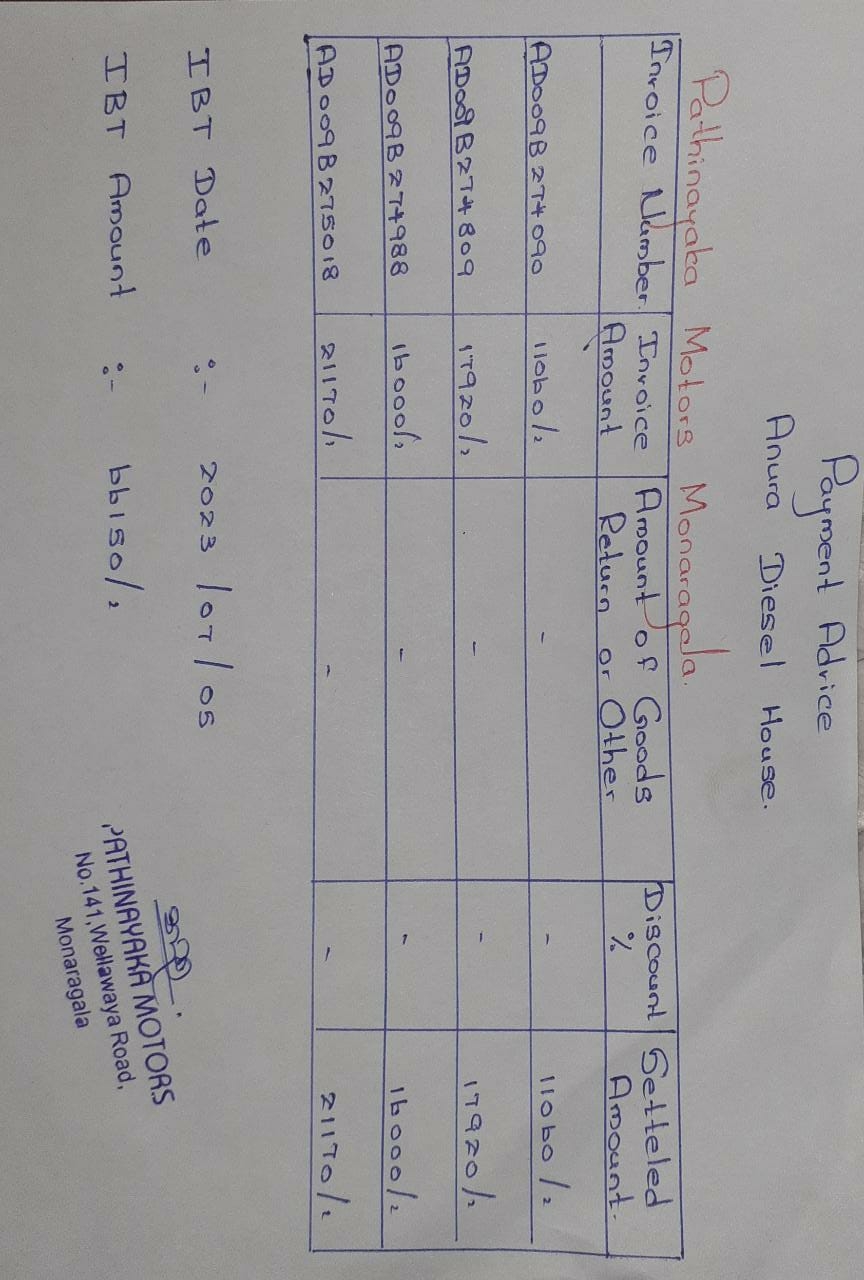 Payment Advice
Anura Diesel House.
Pathinayaka Motors Monaragala.
Invoice Number. Invoice Amount Amount of Goods Return or Other Discount % Setteled Amount.
AD009B274090 11060/= - - 11060/=
AD009B274809 17920/= - - 17920/=
AD009B274988 16000/= - - 16000/=
AD009B275018 21170/= - - 21170/=
IBT Date :- 2023/07/05
IBT Amount :- 66150/=
PATHINAYAKA MOTORS
No.141, Wellawaya Road,
Monaragala